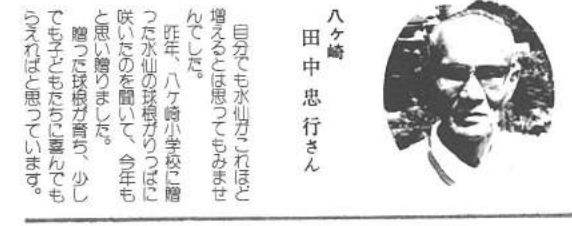 八ヶ崎
田中忠行さん
自分でも水仙がこれほど
増えるとは思ってもみませ
んでした。
昨年、八ケ崎小学校に贈
った水仙の球根がりっぱに
咲いたのを聞いて、今年も
と思い贈りました。
贈った球根が育ち、少し
でも子どもたちに喜んでも
らえればと思っています。